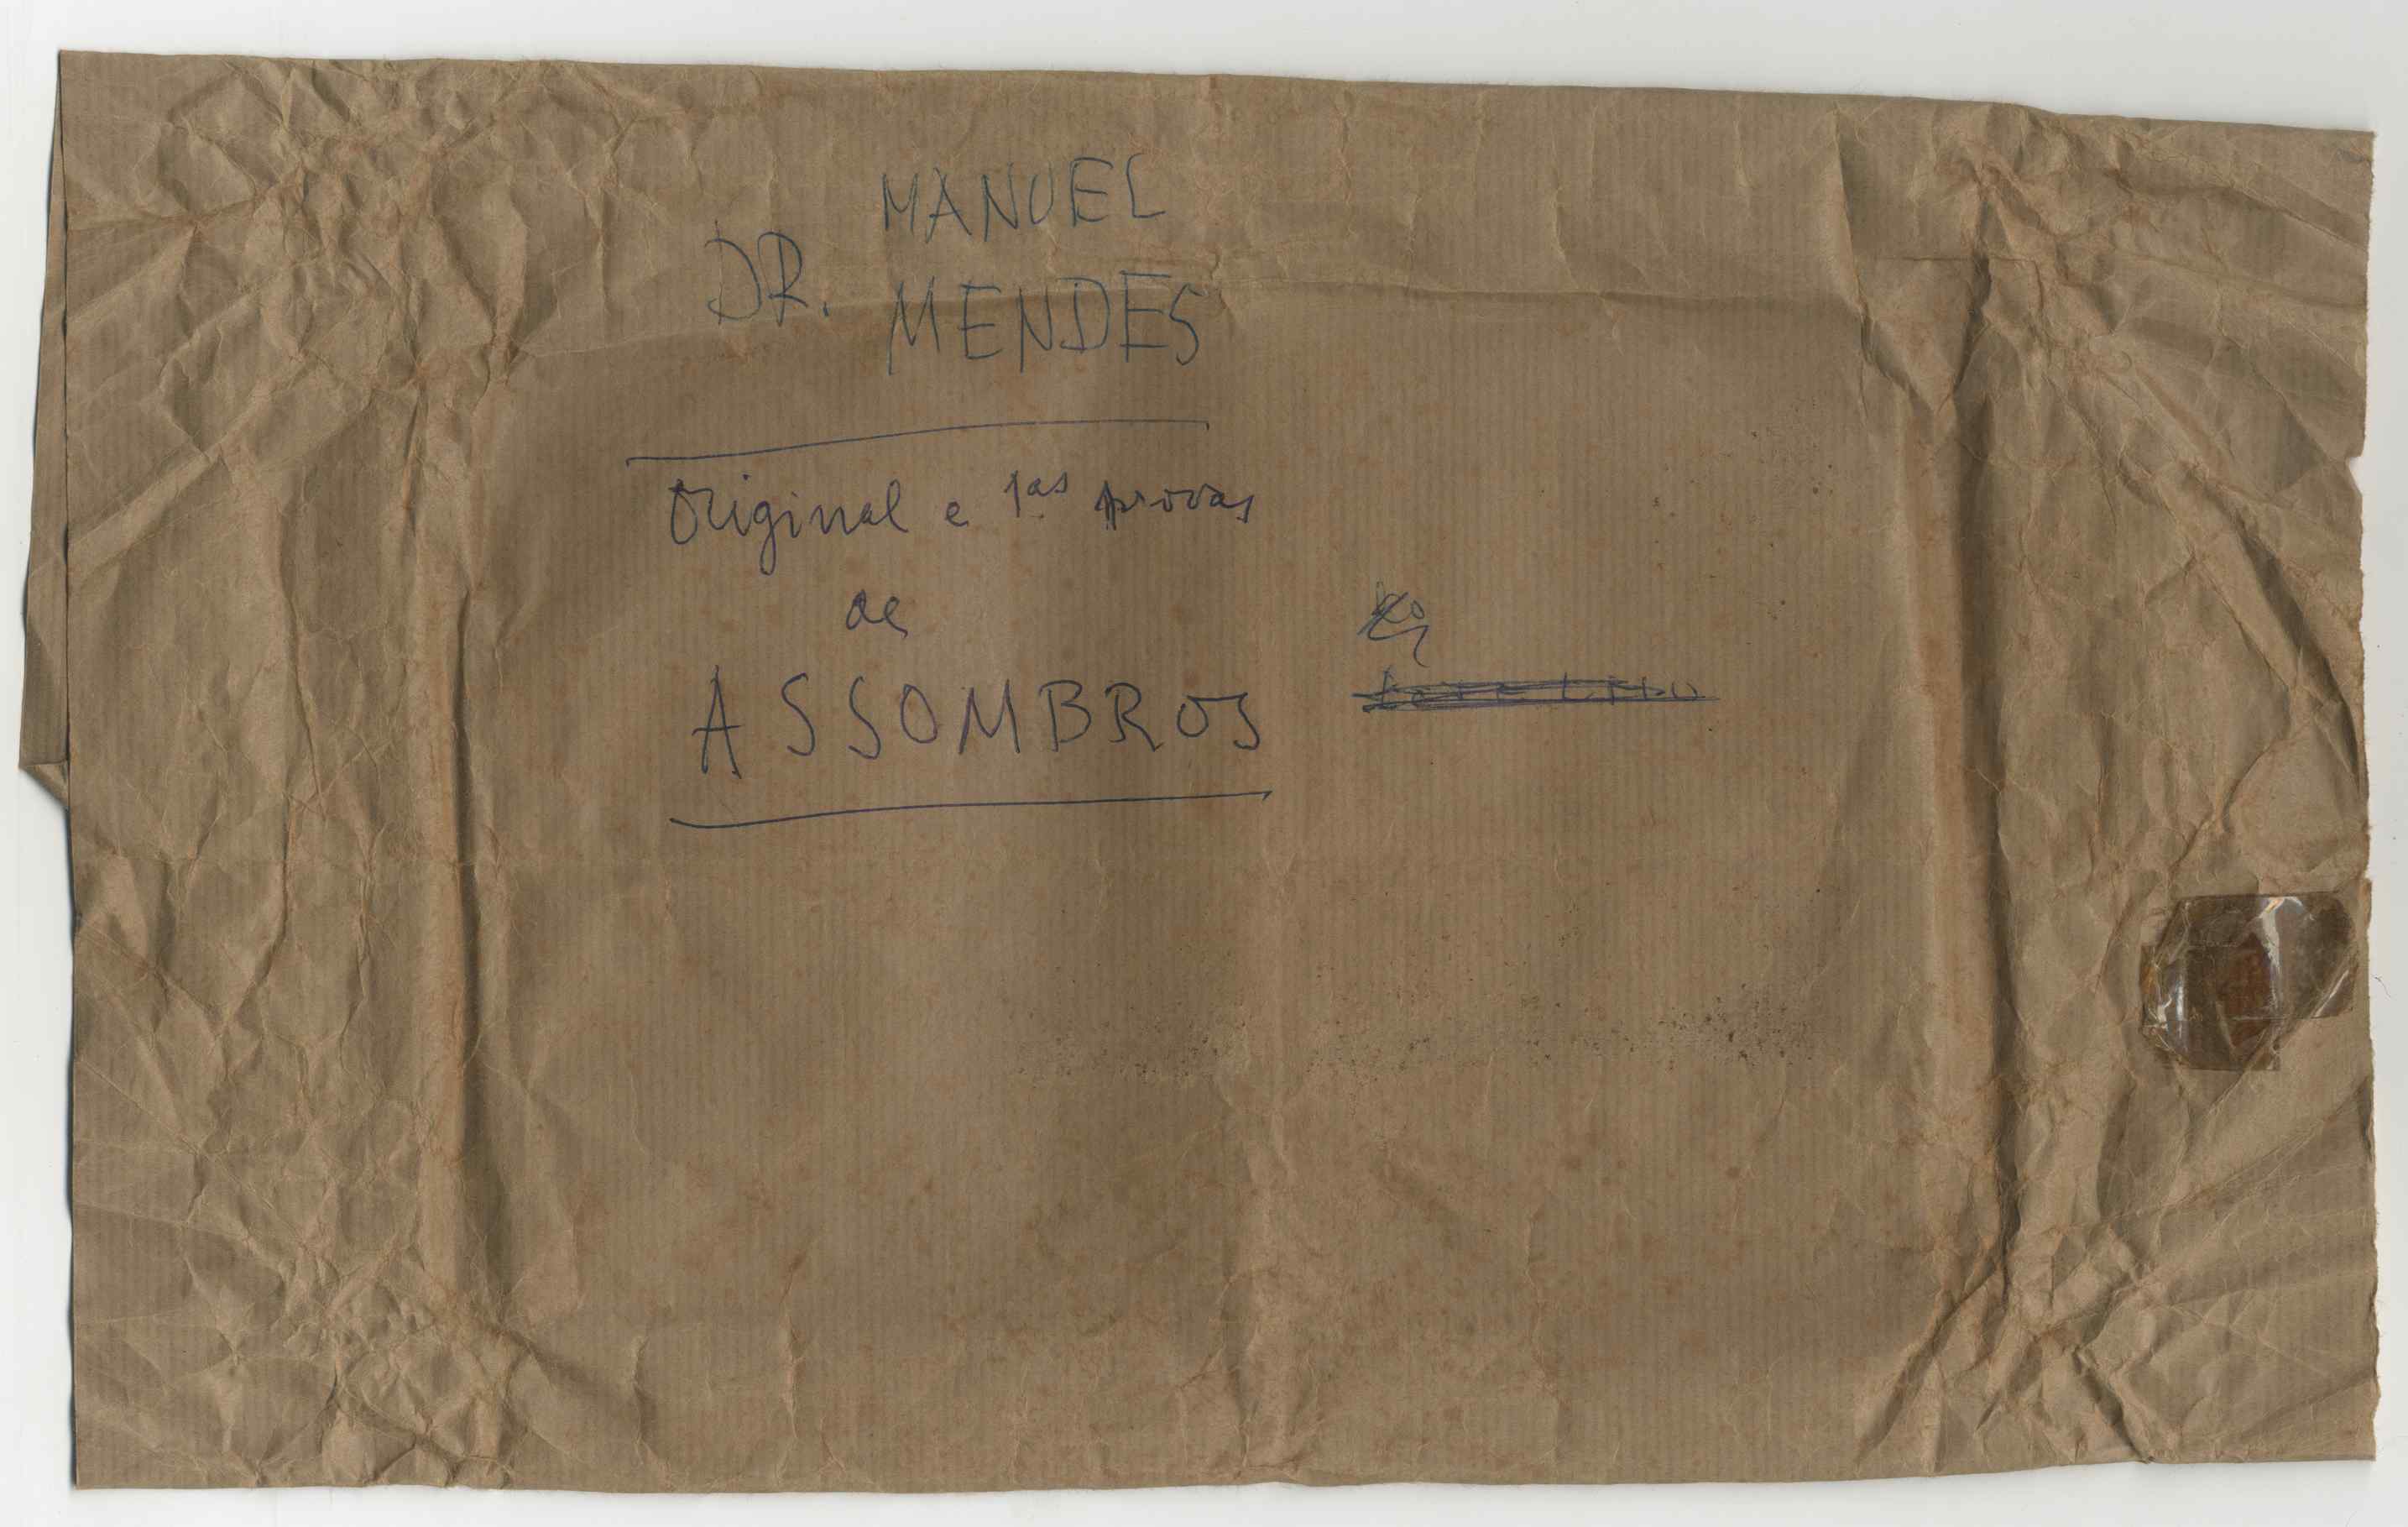 MANUEL
DR. MENDES
Original e 1as provas
de
ASSOMBROS